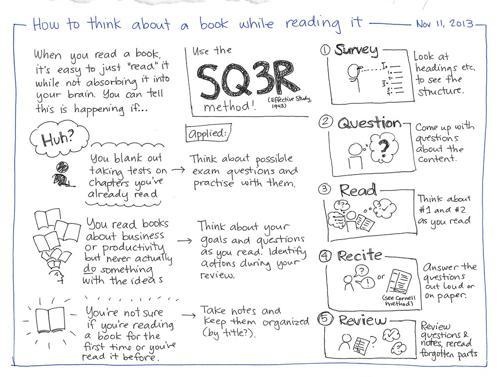 How to think about a book while reading it
Nov 11, 2013
When you read a book,
it's easy to just "read" it
while not absorbing it into
your brain. You can tell
this is happening if...
Use the
SQ3R
method!
(Effective Study,
1943)
Applied:
Huh?
You blank out
taking tests on
chapters you've
already read
Think about possible
exam questions and
practise with them.
You read books
about business
or productivity
but never actually
do something
with the ideas
Think about your
goals and questions
as you read. Identify
actions during your
review.
You're not sure
if you're reading
a book for the
first time or you've
read it before.
Take notes and
keep them organized
(by title?).
① Survey
Look at
headings etc.
to see the
structure.
② Question
?
Come up with
questions
about the
content.
③ Read
Think about
#1 and #2
as you read
④ Recite
?
or
(see Cornell
method)
Answer the
questions
out loud or
on paper.
⑤ Review
?
Review
questions &
notes, reread
forgotten parts